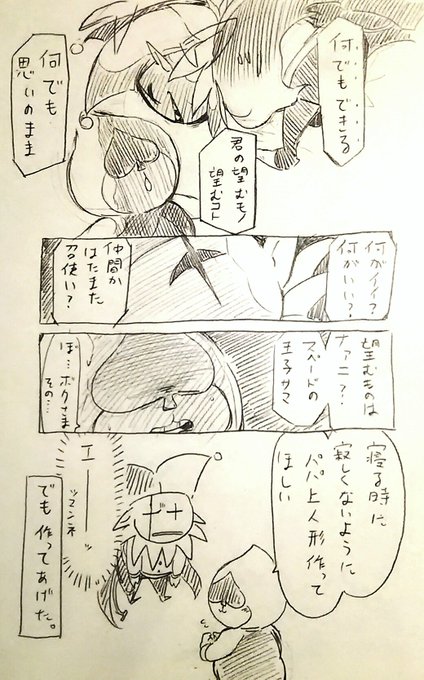 何でもできる
何でも
思いのまま
君の望むモノ
望むコト
何がイイ?
何がいい?
仲間か
はたまた
召使い?
望むものは
ナァニ?
スペードの
王子サマ
ぼ…ボクさま
その…
寝る時に
寂しくないように
パパ上人形作って
ほしい
エーーーッ
ツマンネ
でも作ってあげた。